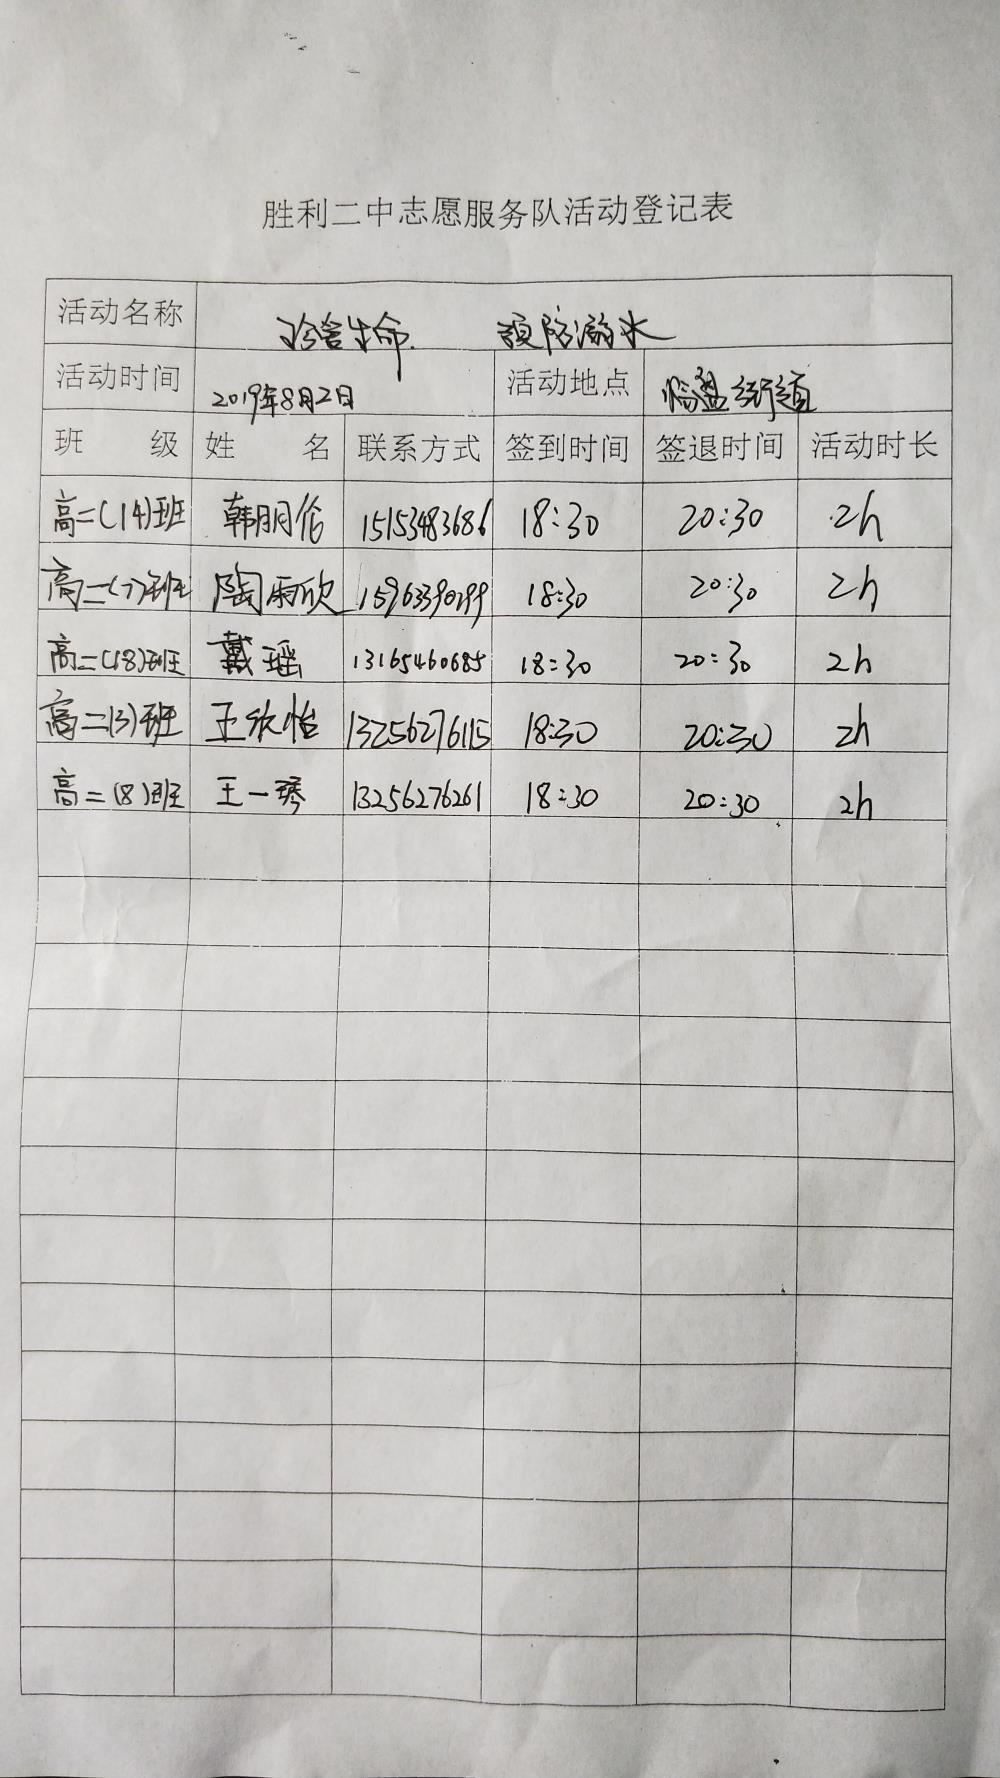 胜利二中志愿服务队活动登记表
活动名称 珍爱生命 预防溺水
活动时间 2019年8月2日 活动地点 街道
班 级 姓 名 联系方式 签到时间 签退时间 活动时长
高二(14)班 韩明伦 15153483686 18:30 20:30 2h
高二(7)班 陶雨欣 15963390299 18:30 20:30 2h
高二(18)班 戴瑶 13165460685 18:30 20:30 2h
高二(3)班 王欣怡 13256276115 18:30 20:30 2h
高二(8)班 王一琴 13256276261 18:30 20:30 2h